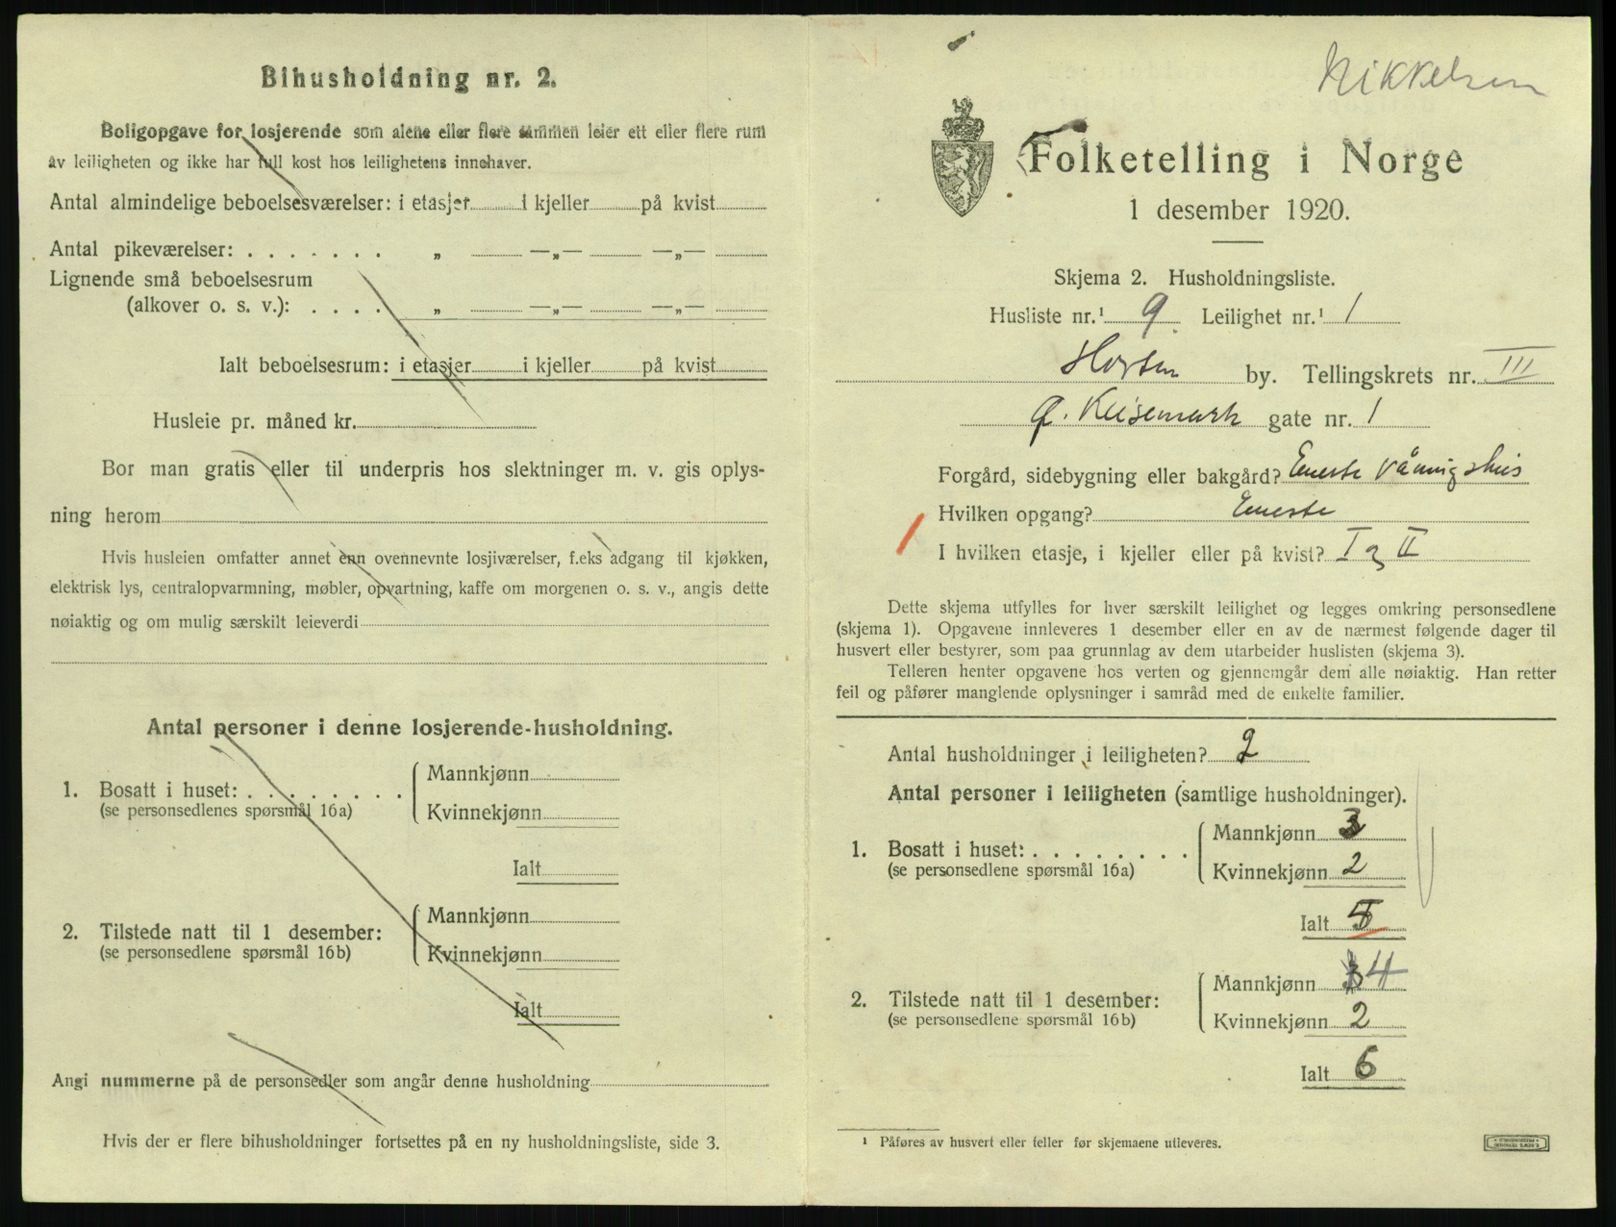 Bihusholdning nr. 2.
Boligopgave for losjerende som alene eller flere sammen leier ett eller flere rum
av leiligheten og ikke har full kost hos leilighetens innehaver.
Antal almindelige beboelsesværelser: i etasjer i kjeller på kvist
Antal pikeværelser: . . . . . . . „ —„— —„—
Lignende små beboelsesrum
(alkover o. s. v.): . . . . „ —„— —„—
Ialt beboelsesrum: i etasjer i kjeller på kvist
Husleie pr. måned kr.
Bor man gratis eller til underpris hos slektninger m. v. gis oplys-
ning herom
Hvis husleien omfatter annet enn ovennevnte losjiværelser, f.eks adgang til kjøkken,
elektrisk lys, centralopvarmning, møbler, opvartning, kaffe om morgenen o. s. v., angis dette
nøiaktig og om mulig særskilt leieverdi
Antal personer i denne losjerende-husholdning.
1. Bosatt i huset: . . . . . . . . Mannkjønn
(se personsedlenes spørsmål 16a) Kvinnekjønn
Ialt
2. Tilstede natt til 1 desember: Mannkjønn
(se personsedlene spørsmål 16b) Kvinnekjønn
Ialt
Angi nummerne på de personsedler som angår denne husholdning
Hvis der er flere bihusholdninger fortsettes på en ny husholdningsliste, side 3.
Mikkelsen
Folketelling i Norge
1 desember 1920.
Skjema 2. Husholdningsliste.
Husliste nr.¹ 9 Leilighet nr.¹ 1
Horten by. Tellingskrets nr. III
Ø. Keisemark gate nr. 1
Forgård, sidebygning eller bakgård? Eneste våningshus
Hvilken opgang? Eneste
I hvilken etasje, i kjeller eller på kvist? I og II
Dette skjema utfylles for hver særskilt leilighet og legges omkring personsedlene
(skjema 1). Opgavene innleveres 1 desember eller en av de nærmest følgende dager til
husvert eller bestyrer, som paa grunnlag av dem utarbeider huslisten (skjema 3).
Telleren henter opgavene hos verten og gjennemgår dem alle nøiaktig. Han retter
feil og påfører manglende oplysninger i samråd med de enkelte familier.
Antal husholdninger i leiligheten? 2
Antal personer i leiligheten (samtlige husholdninger).
1. Bosatt i huset: . . . . . . . . Mannkjønn 3
(se personsedlene spørsmål 16a) Kvinnekjønn 2
Ialt 5
2. Tilstede natt til 1 desember: Mannkjønn 3 4
(se personsedlene spørsmål 16b) Kvinnekjønn 2
Ialt 6
¹ Påføres av husvert eller teller før skjemaene utleveres.